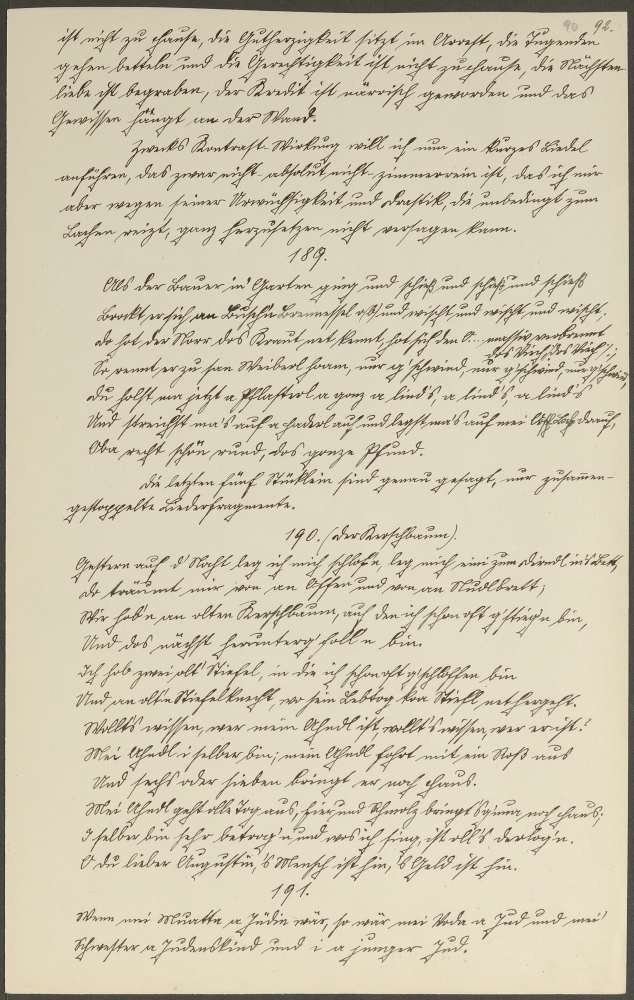 90 92.
ist nicht zu Hause, die Gutherzigkeit sitzt im Arrest, die Tugenden
gehen betteln und die Gerechtigkeit ist nicht zu Hause, die Nächsten
liebe ist begraben, der Kredit ist närrisch geworden und das
Gewissen hängt an der Wand.
Zwecks Kontrast-Wirkung will ich nun ein kurzes Liedel
anführen, das zwar nicht absolut nicht zimmerrein ist, das ich mir
aber wegen seiner Urwüchsigkeit und Drastik, die unbedingt zum
Lachen reizt, ganz herzusetzen nicht versagen kann.
189.
Als der Bauer in Garten ging und schieß und schieß und schieß
Brockt er sich an Buschn Brennessel o(ß) und wischt und wischt und wischt.
Do hot der Norr dos Kraut net kennt, hot sich den O... massiv verbrennt
dos Viech, dos Viech :;
So rennt er zu san Weiberl hoam, nur g'schwind, nur g'schwind, nur g'schwind,
Du holst ma jetzt a Pflasterl a gonz a lind's, a lind's, a lind's
Und streichst ma's auf a Haderl auf und legst ma's auf mei Loch drauf,
Oba recht schön rund, dos gonze Pfund.
Die letzten fünf Stücklein sind genau gesagt, nur zusammen-
gestoppelte Liederfragmente.
190. (Der Kerschbaum).
Gestern auf d' Nacht leg ich mich schlof'n leg mich eini zum Dirndl in's Bett,
Do träumt mir von an Offen und von an Nudlbrett;
Wir hob'n an olten Kerschbaum, auf den ich schon oft g'stieg'n bin,
Und dos nächst herunterg'foll'n bin.
Ich hob zwei olt' Stiefel, in die ich schon oft g'schloffen bin
Und an olt'n Stiefelknecht, wo sein Lebtog koa Stiefl net hergeht.
Wollt's wissen, wer mein Ahndl ist, wollt's wissen, wer er ist?
Mei Ahndl i selber bin; mein Ahndl fohrt mit ein Roß aus
Und sechs oder sieben bringt er noch Haus.
Mei Ahndl geht olle Tog aus, Eier und Schmolz bringt s' gnua noch Haus;
I selber bin sehr betrog'n und wos ich sing, ist oll's derlog'n.
O du lieber Augustin, 's Mensch ist hin, 's Geld ist hin.
191.
Wenn mei Muatta a Jüdin wär, so wär mei Voda a Jud und mei
Schwester a Judenskind und i a junger Jud.